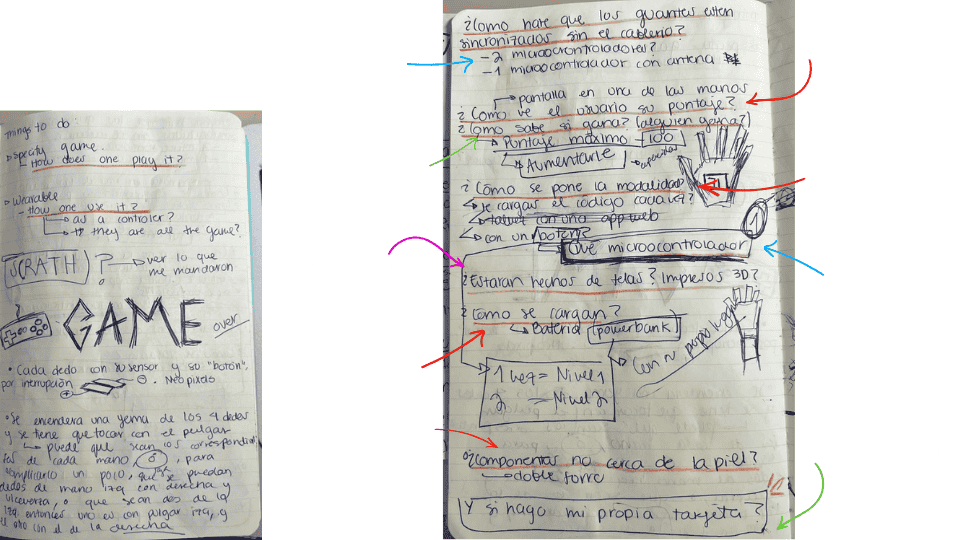 Things to do
▷ Specify game.
↳ How does one play it?
▷ Wearable
- How one use it?
↳ as a controler?
↳ they are all the game?
SCRATH ?
ver lo que
me mandaron
GAME
over
• Cada dedo con su sensor y su "boton",
por interrupción
. Neo pixels
• Se encendera una yema de los 4 dedos
y se tiene que tocar con el pulgar
↳ puede que sean los correspondien
tes de cada mano, ó, para
complicarlo un poco, que se puedan
dedos de mano izq con derecha y
viceversa, o que sean dos de la
izq. entonces uno es con pulgar izq, y
el otro con el de la derecha
¿Como haré que los guantes esten
sincronizados sin el cablerío?
- 2 microcrontroladores?
- 1 microcontrolador con antena
pantalla en una de las manos
¿Como ve el usuario su puntaje?
¿Como sabe si gana? (alguien gana?)
↳ Puntaje maximo - 100
↳ Aumentarle
¿Como se pone la modalidad?
↳ se cargas el código cada vez?
↳ tablet con una app web
↳ con un boton?
1
Que microocontrolador
¿Estaran hechos de telas? Impresos 3D?
¿Como se cargan?
↳ Bateria (powerbank)
1 vez = Nivel 1
2 = Nivel 2
¿Componentas no cerca de la piel?
→ doble forro
Y si hago mi propia targeta?